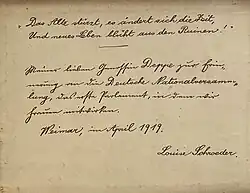 „Das Alte stürzt, es ändert sich die Zeit,
Und neues Leben blüht aus den Ruinen!"
Meiner lieben Genossin Deppe zur Erin-
nerung an die Deutsche Nationalversamm-
lung, das erste Parlament, in dem wir
Frauen mitwirken.
Weimar, im April 1919.
Louise Schroeder.